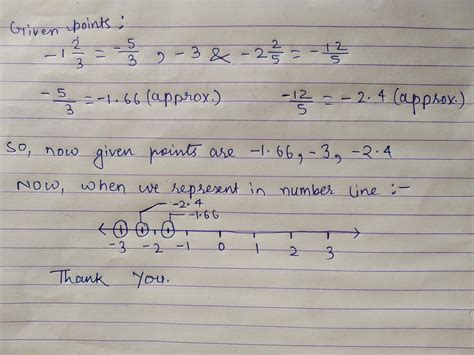 Given points :
-1 2/3 = -5/3 , -3 & -2 2/5 = -12/5
-5/3 = -1.66 (approx.) -12/5 = -2.4 (approx.)
So, now given points are -1.66, -3, -2.4
Now, when we represent in number line :-
-2.4
-1.66
-3 -2 -1 0 1 2 3
Thank You.